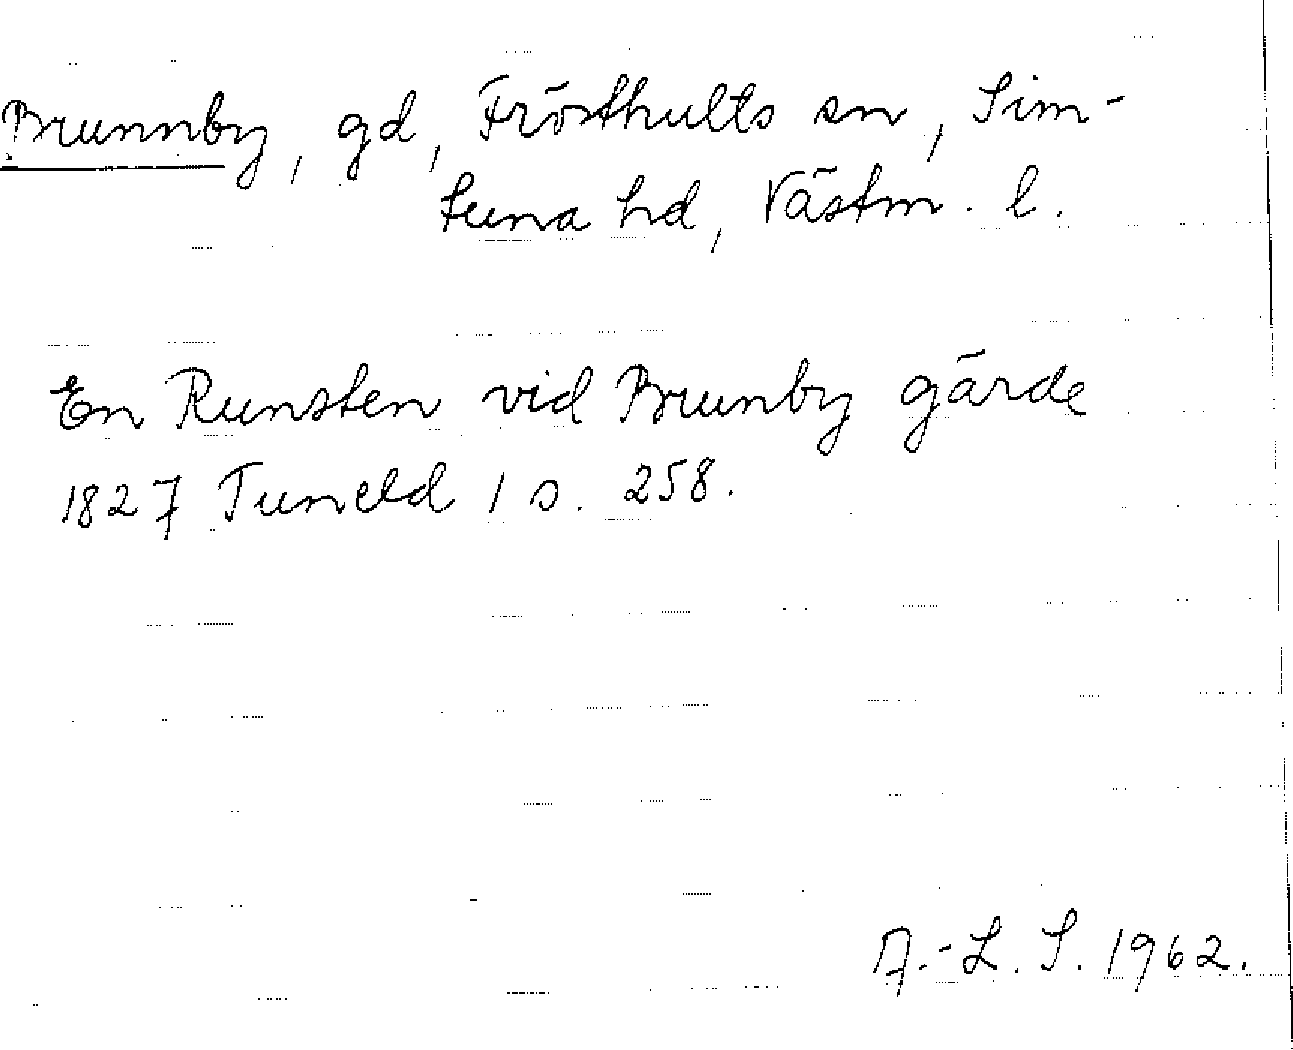 Brunnby, gd, Frösthults sn, Sim-
tuna hd, Västm. l.
En Runsten vid Brunby gärde
1827 Tuneld 1 s. 258.
A.-L. S. 1962.